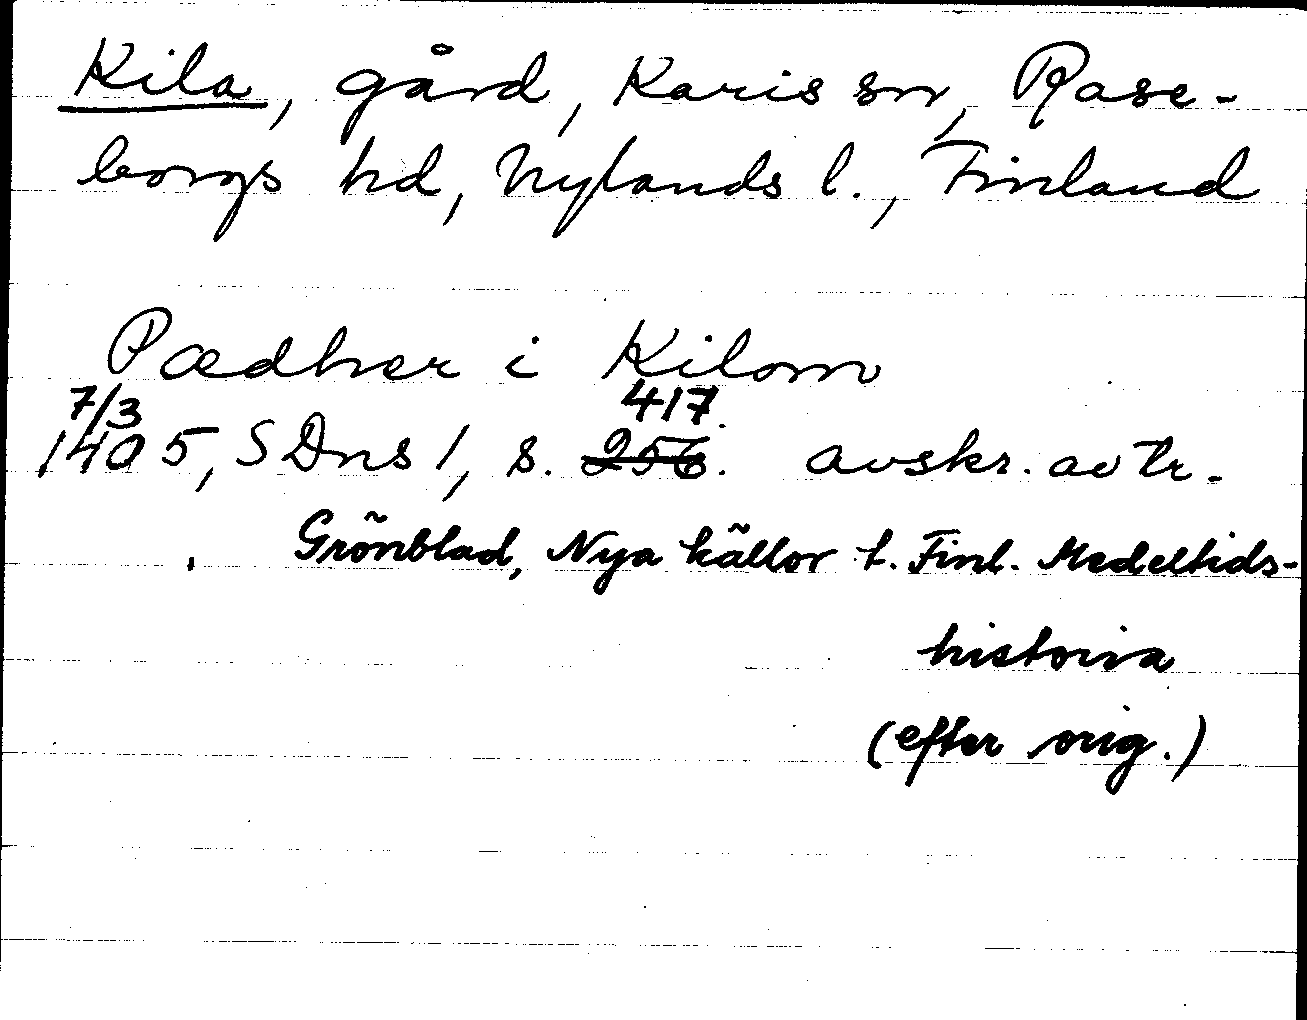 Kila, gård, Karis sn, Rase-
borgs hd, Nylands l., Finland
Pædher i Kilom
7/3 417.
1405, SDns 1, s. 256. avskr. av tr.
Grönblad, Nya källor t. Finl. Medeltids-
historia
(efter orig.)